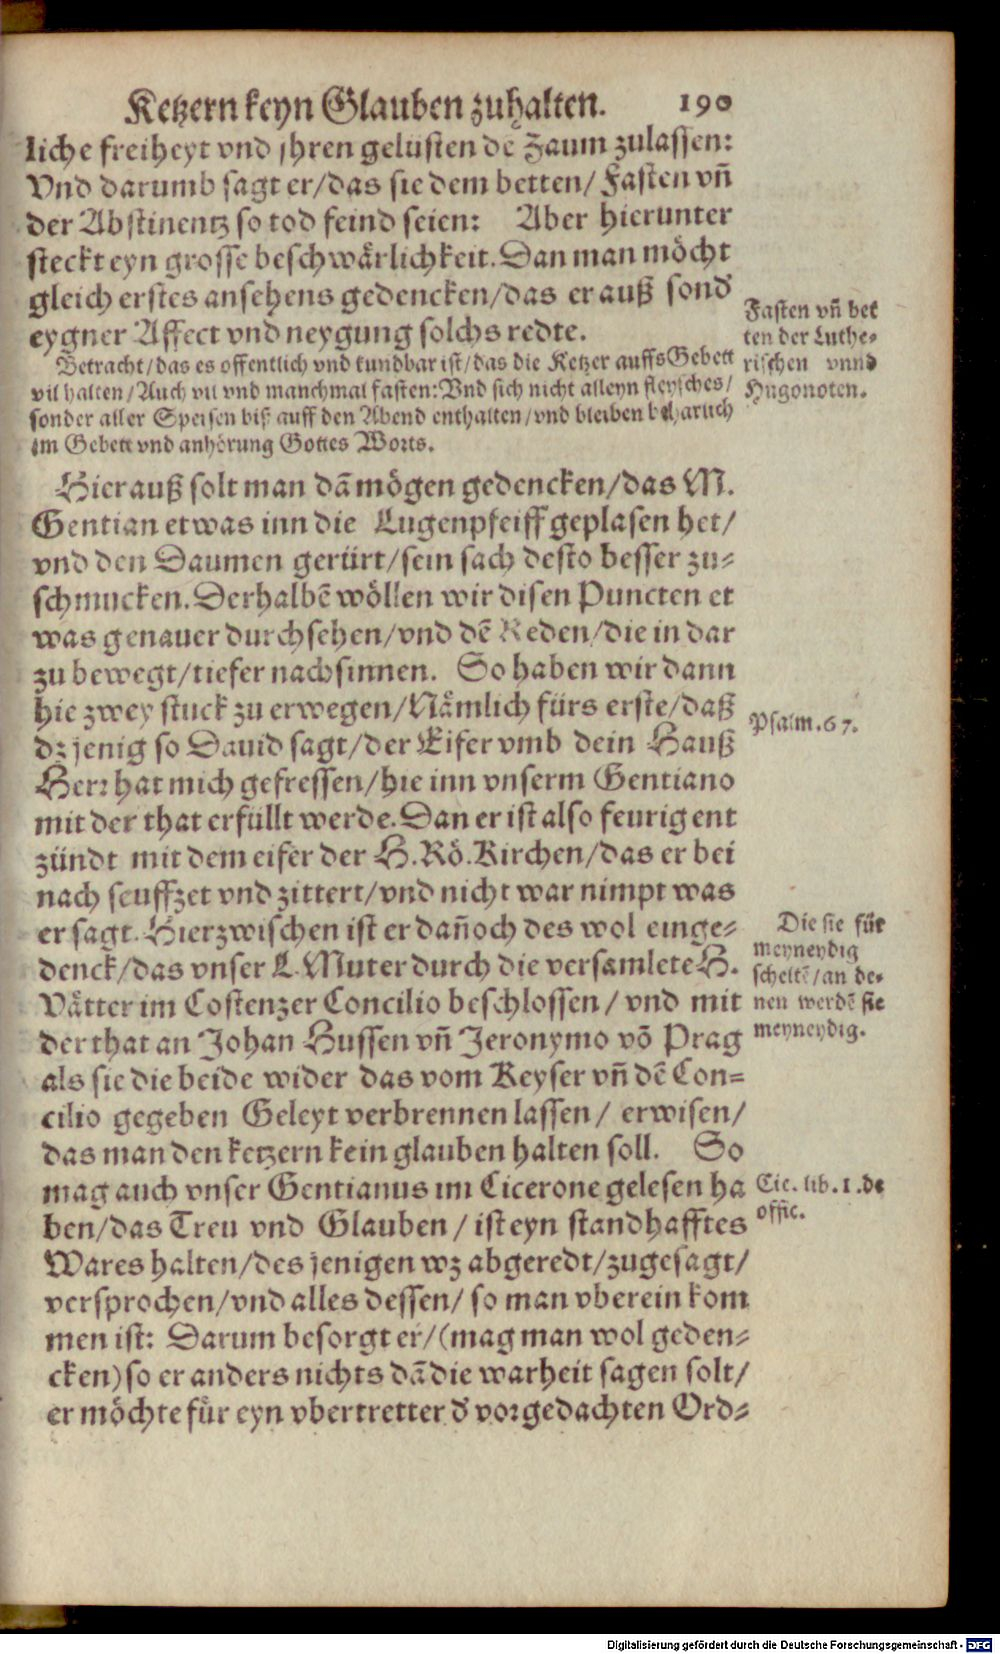 Ketzern keyn Glauben zuhalten. 190
liche freiheyt vnd jhren gelüsten dē Zaum zulassen:
Vnd darumb sagt er/das sie dem betten/ Fasten vñ
der Abstinentz so tod feind seien: Aber hierunter
steckt eyn grosse beschwärlichkeit. Dan man möcht
gleich erstes ansehens gedencken/das er auß sond'
eygner Affect vnd neygung solchs redte.
Fasten vñ bet
ten der Luthe-
rischen vnnd
Hugonoten.
Betracht/das es offentlich vnd kundbar ist/das die Ketzer auffs Gebett
vil halten/Auch vil vnd manchmal fasten: Vnd sich nicht alleyn fleysches/
sonder aller Speisen biß auff den Abend enthalten/vnd bleiben beharlich
im Gebett vnd anhörung Gottes Worts.
Hierauß solt man dā mögen gedencken/das M.
Gentian etwas inn die Lugenpfeiff geplasen het/
vnd den Daumen gerürt/sein sach desto besser zu-
schmucken. Derhalbē wöllen wir disen Puncten et
was genauer durchsehen/vnd dē Reden/die in dar
zu bewegt/tiefer nachsinnen. So haben wir dann
hie zwey stuck zu erwegen/Nämlich fürs erste/daß
dz jenig so Dauid sagt/der Eifer vmb dein Hauß
Herr hat mich gefressen/hie inn vnserm Gentiano
Psalm.67.
mit der that erfüllt werde. Dan er ist also feurig ent
zündt mit dem eifer der H. Rö. Kirchen/das er bei
nach seuffzet vnd zittert/vnd nicht war nimpt was
er sagt. Hierzwischen ist er dañoch des wol einge-
denck/das vnser L. Muter durch die versamlete H.
Vätter im Costenzer Concilio beschlossen/ vnd mit
der that an Johan Hussen vñ Jeronymo vō Prag
Die sie für
meyneydig
scheltē/an de-
nen werdē sie
meyneydig.
als sie die beide wider das vom Keyser vñ dē Con=
cilio gegeben Geleyt verbrennen lassen/ erwisen/
das man den ketzern kein glauben halten soll. So
mag auch vnser Gentianus im Cicerone gelesen ha
Cic. lib.1.de
offic.
ben/das Treu vnd Glauben/ ist eyn standhafftes
Wares halten/des jenigen wz abgeredt/zugesagt/
versprochen/vnd alles dessen/ so man vberein kom
men ist: Darum besorgt er/(mag man wol geden-
cken) so er anders nichts dā die warheit sagen solt/
er möchte für eyn vbertretter d' vorgedachten Ord-
Digitalisierung gefördert durch die Deutsche Forschungsgemeinschaft - DFG